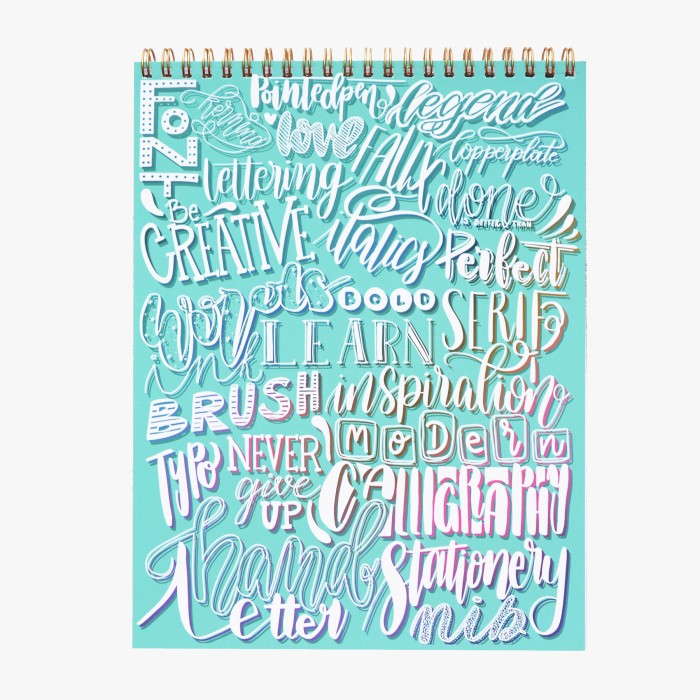 FONT
Pointedpen
legend
love
FAUX
Copperplate
lettering
done
IS BETTER THAN
Perfect
Be
CREATIVE
italics
words
BOLD
SERIF
LEARN
ink
BRUSH
inspiration
MODern
TYPO
NEVER
give
UP!
CALLIGRAPHY
hand
letter
Stationery
nib